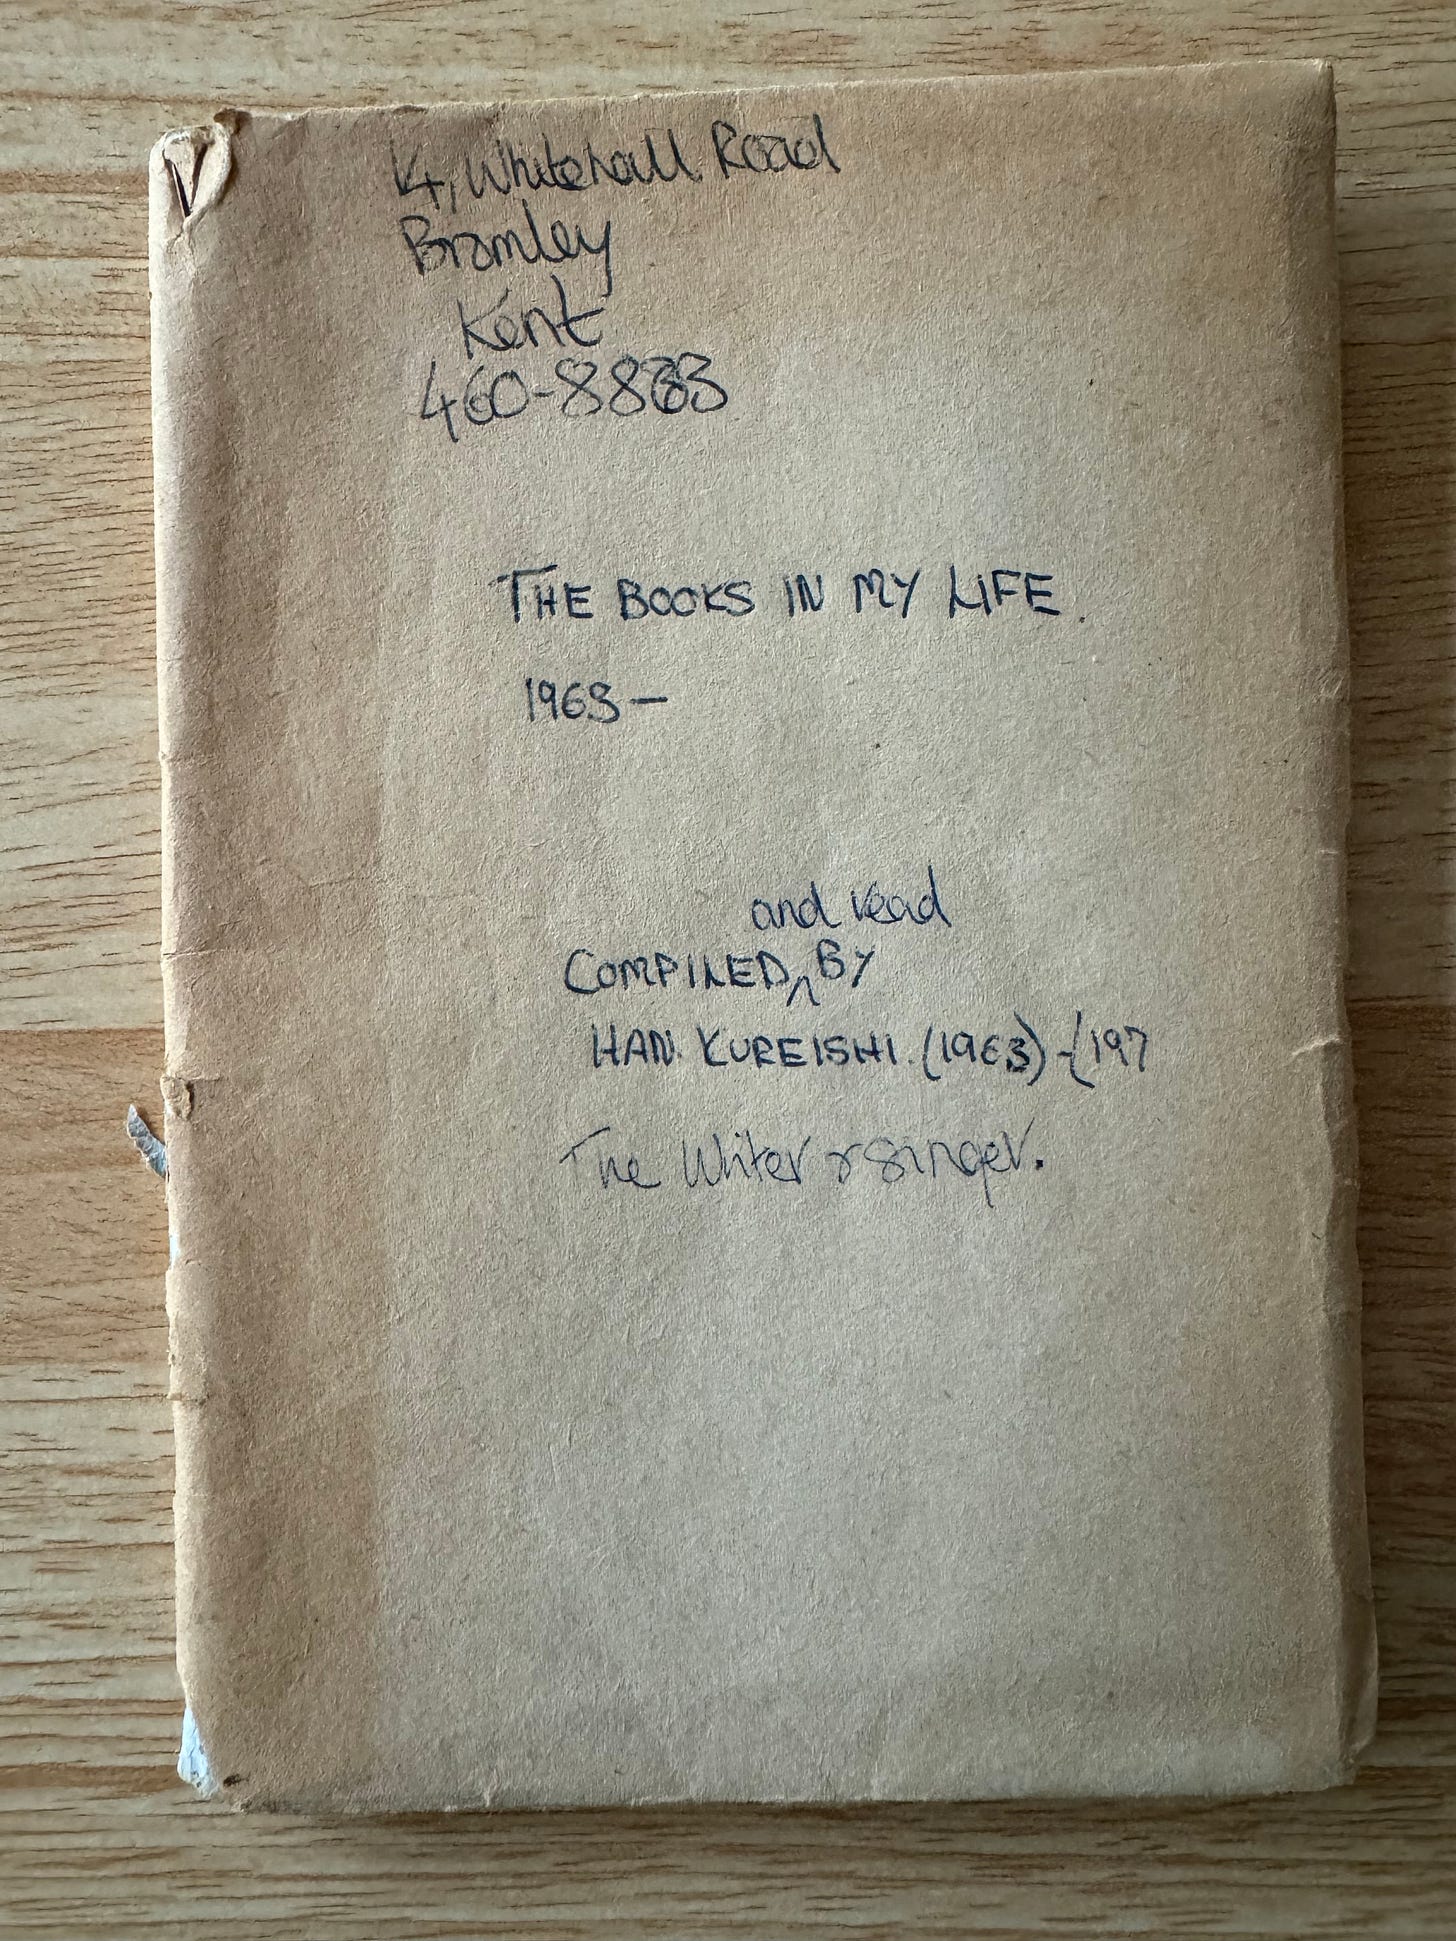 14, Whitehall Road
Bromley
Kent
THE BOOKS IN MY LIFE.
1963 —
and read
COMPILED ^ BY
HAN. KUREISHI. (1963) - (197
The Writer & singer.